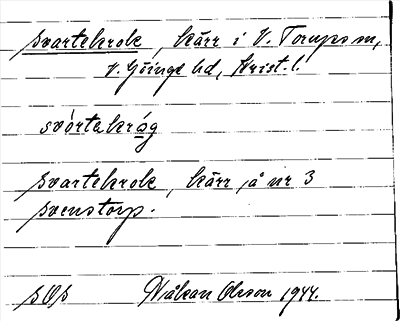 Svartekrok, kärr i V. Torups sn,
V. Göinge hd, Krist. l.
svòrtekróg
Svartekrok, kärr på nr 3
Svenstorp.
SOS Håkan Olsson 1944.